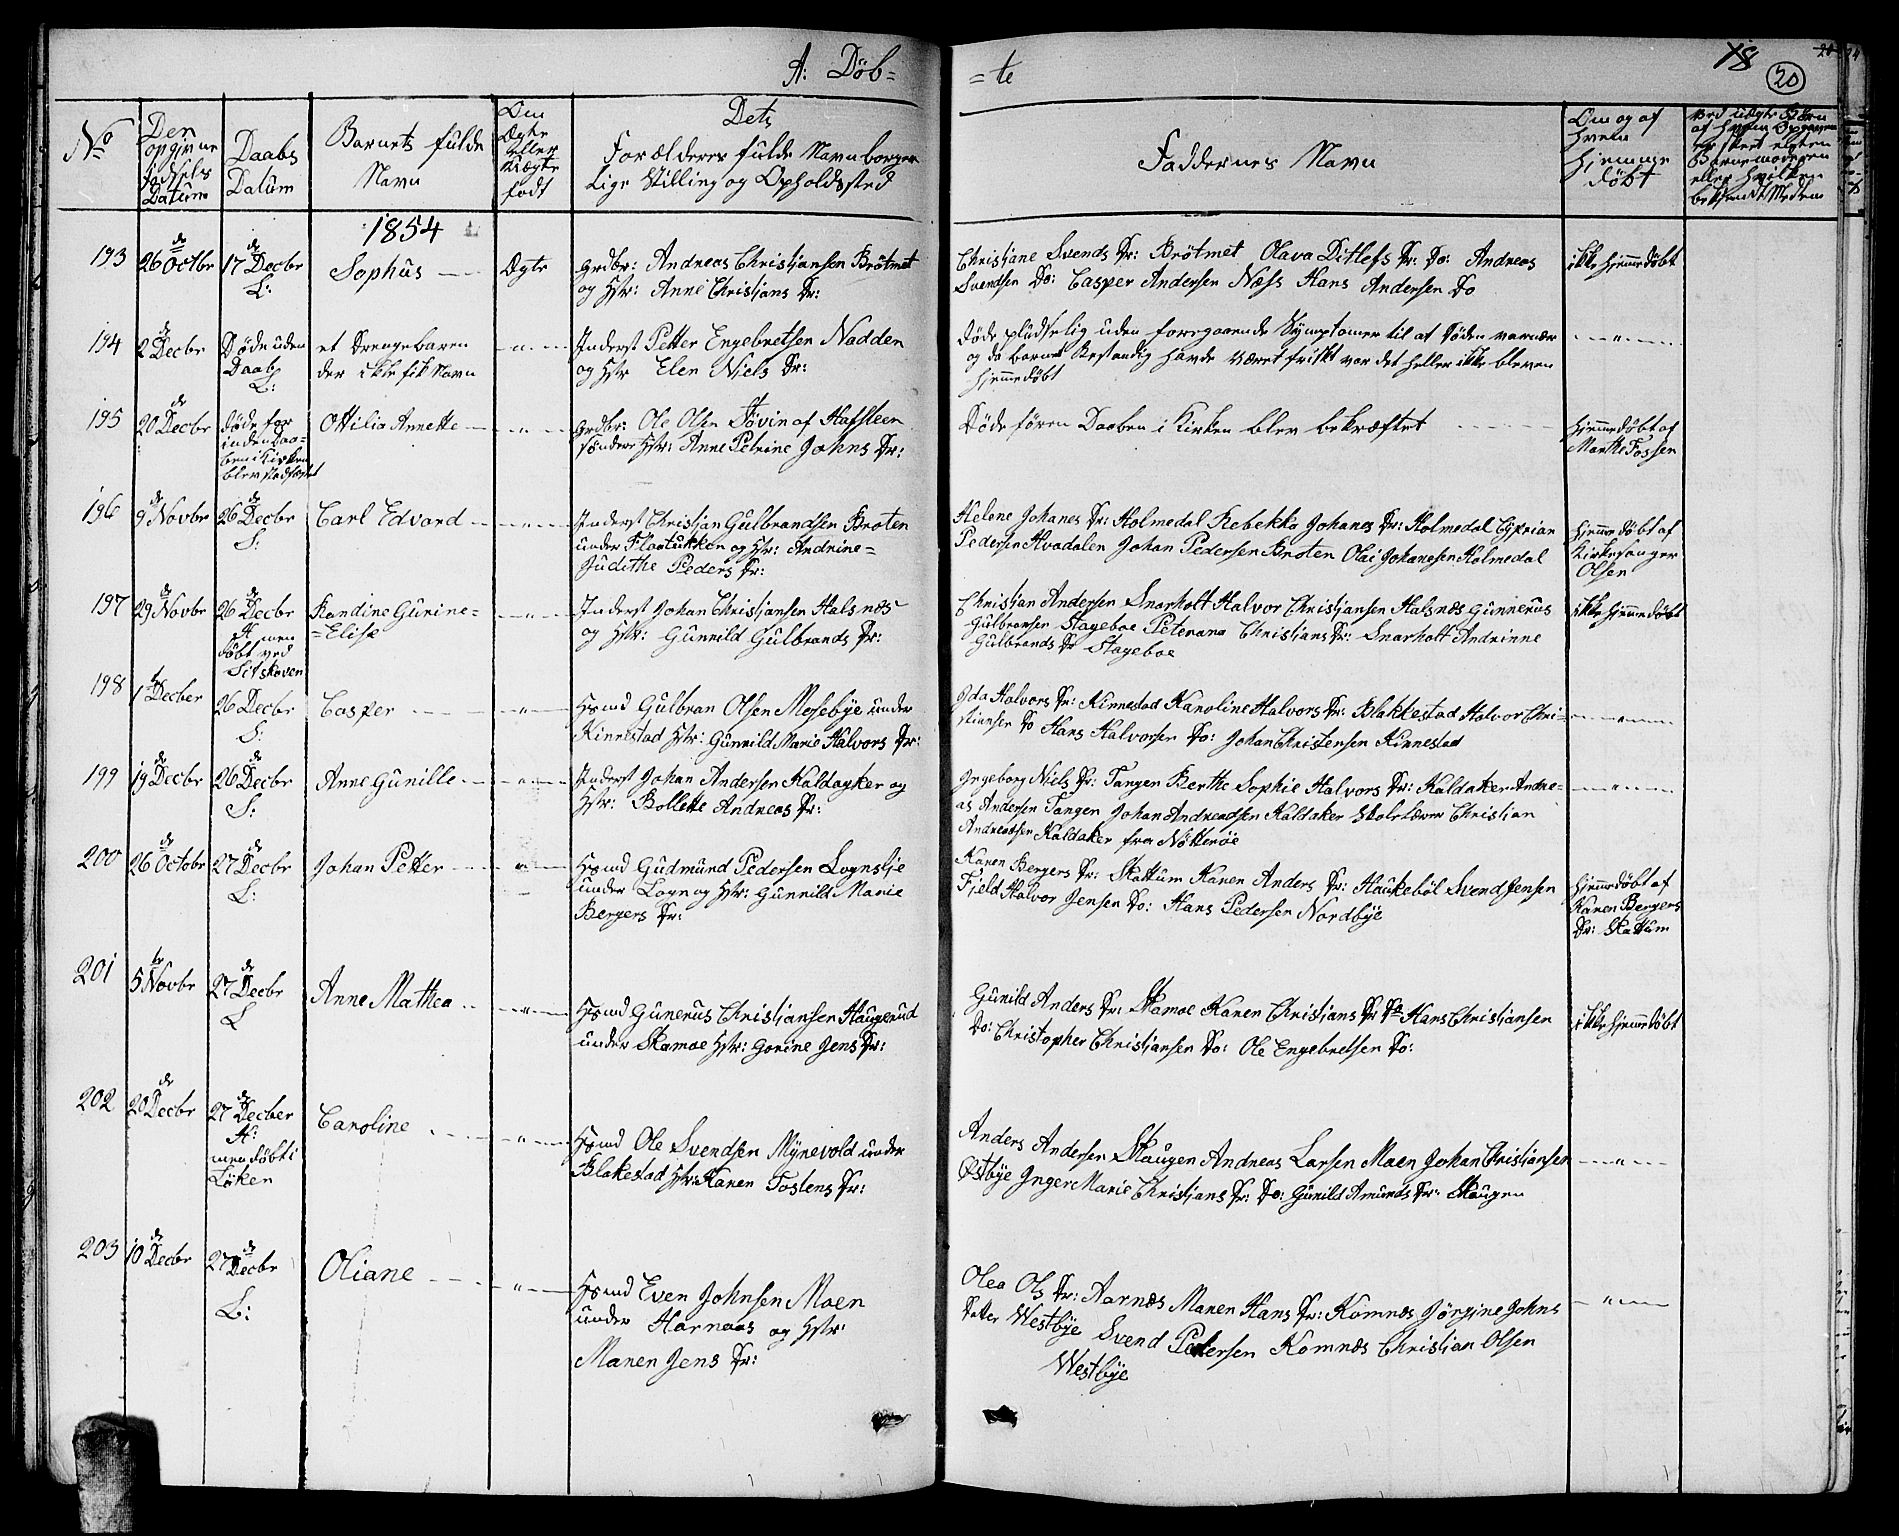 A: Döb=
=te
18
20
No
Den opgivne Födsels Datum
Daabs Datum
Barnets fulde Navn
Om Ægte eller Uægte født
Dets Forælderes fulde Navn borger
Lige Stilling og Opholdsted
Faddernes Navn
Om og af hvem hjemme döbt
1854
193 26de Octbr 17de Decbr L: Sophus Ægte
Grdbr: Andreas Christjansen Brötmet
og Hstr: Anne Christjans Dr:
Christjane Svends Dr: Brötmet Olava Ditlefs Dr: Do: Andreas
Svendsen Do: Casper Andersen Næss Hans Andersen Do
ikke hjemmedöbt
194 2de Decbr Döde uden Daab L: et Drengebaren
der ikke fik Navn
Inderst Petter Engebretsen Nadden
og Hstr Elen Niels Dr:
Döde pludselig uden foregaaende Symptomer til at Döden var nær
og da barnet bestandig havde været friskt var det heller ikke bleven
hjemmedöbt
195 20de Decbr döde for inden Daaben i Kirken blev stadfæstet Ottilia Annette
Grdbr: Ole Olsen Tövin af Hafsteen
söndere Hstr: Anne Petrine Johns Dr:
Döde förend Daaben i Kirken blev bekræftet
hjemmedöbt af
Marthe Fossen
196 9de Novbr 26de Decbr S: Carl Edvard
Inderst Christjan Gulbrandsen Broten
under Flaatukken og Hstr: Andrine=
Judithe Peders Dr:
Helene Johanes Dr: Holmedal Rebekka Johanes Dr: Holmedal Cyprian
Pedersen Hvadalen Johan Pedersen Broten Olai Johanesen Holmedal
hjemmedöbt af
Kirkesanger
Olsen
197 29de Novbr 26de Decbr H: men döbt ved Sitskoven Randine Gurine=
=Elise
Inderst Johan Christjansen Halsnæs
og Hstr: Gunnild Gulbrands Dr:
Christjan Andersen Snarholt Halvor Christjansen Halsnæs Gunnerus
Gulbransen Stageboe Peternana Christjans Dr: Snarholt Andrinne
Gulbrands Dr Stageboe
ikke hjemmedöbt
198 1te Decber 26 Decbr S: Casper
Hsmd Gulbran Olsen Mosebye under
Kinnestad Hstr: Gunnild Marie Halvors Dr:
Ida Halvors Dr: Kinnestad Karoline Halvors Dr: Blakkestad Halvor Chri=
stiansen Do Hans Halvorsen Do: Johan Christensen Kinnestad
199 19de Decbr 26de Decbr S: Anne Gunille
Inderst Johan Andersen Kaldagker og
Hstr: Bollette Andreas Dr:
Ingeborg Niels Dr: Tangen Berthe Sophie Halvors Dr: Kaldaker Andre=
as Andersen Tangen Johan Andreassen Kaldaker Skolelærer Christian
Andreassen Kaldaker fra Nötteröe
200 26de Octobr 27de Decbr L: Johan Petter
Hsmd Gudmund Pedersen Lognslje
under Logn og Hstr: Gunnild Marie
Bergers Dr:
Karen Bergers Dr: Skattum Karen Anders Dr: Haukeböl Svend Jensen
Fjeld Halvor Jensen Do: Hans Pedersen Nordbye
hjemmedöbt af
Karen Bergers
Dr: Skattum
201 5te Novbr 27de Decbr L Anne Mathea
Hsmd Gunerus Christjansen Haugerud
under Skamoe Hstr: Gorine Jens Dr:
Gunild Anders Dr: Skamoe Karen Christjans Dr Do Hans Christjansen
Do: Christopher Christjansen Do: Ole Engebretsen Do:
ikke hjemmedöbt
202 20de Decbr 27de Decber H: men döbt i Löken Caroline
Hsmd Ole Svendsen Mynevold under
Blakestad Hstr: Karen Tostens Dr:
Anders Andersen Skaugen Andreas Larsen Moen Johan Christjansen
Östbye Inger Marie Christjans Dr: Do: Gunild Amunds Dr: Skaugen
203 10de Decbr 27de Decbr L: Oliane
Hsmd Even Johnsen Moen
under Hornaas og Hstr:
Maren Jens Dr:
Olea Ols Dr: Aarnæs Maren Hans Dr: Komnæs Jörgine Johns
Datter Westbye Svend Pedersen Komnæs Christian Olsen
Westbye